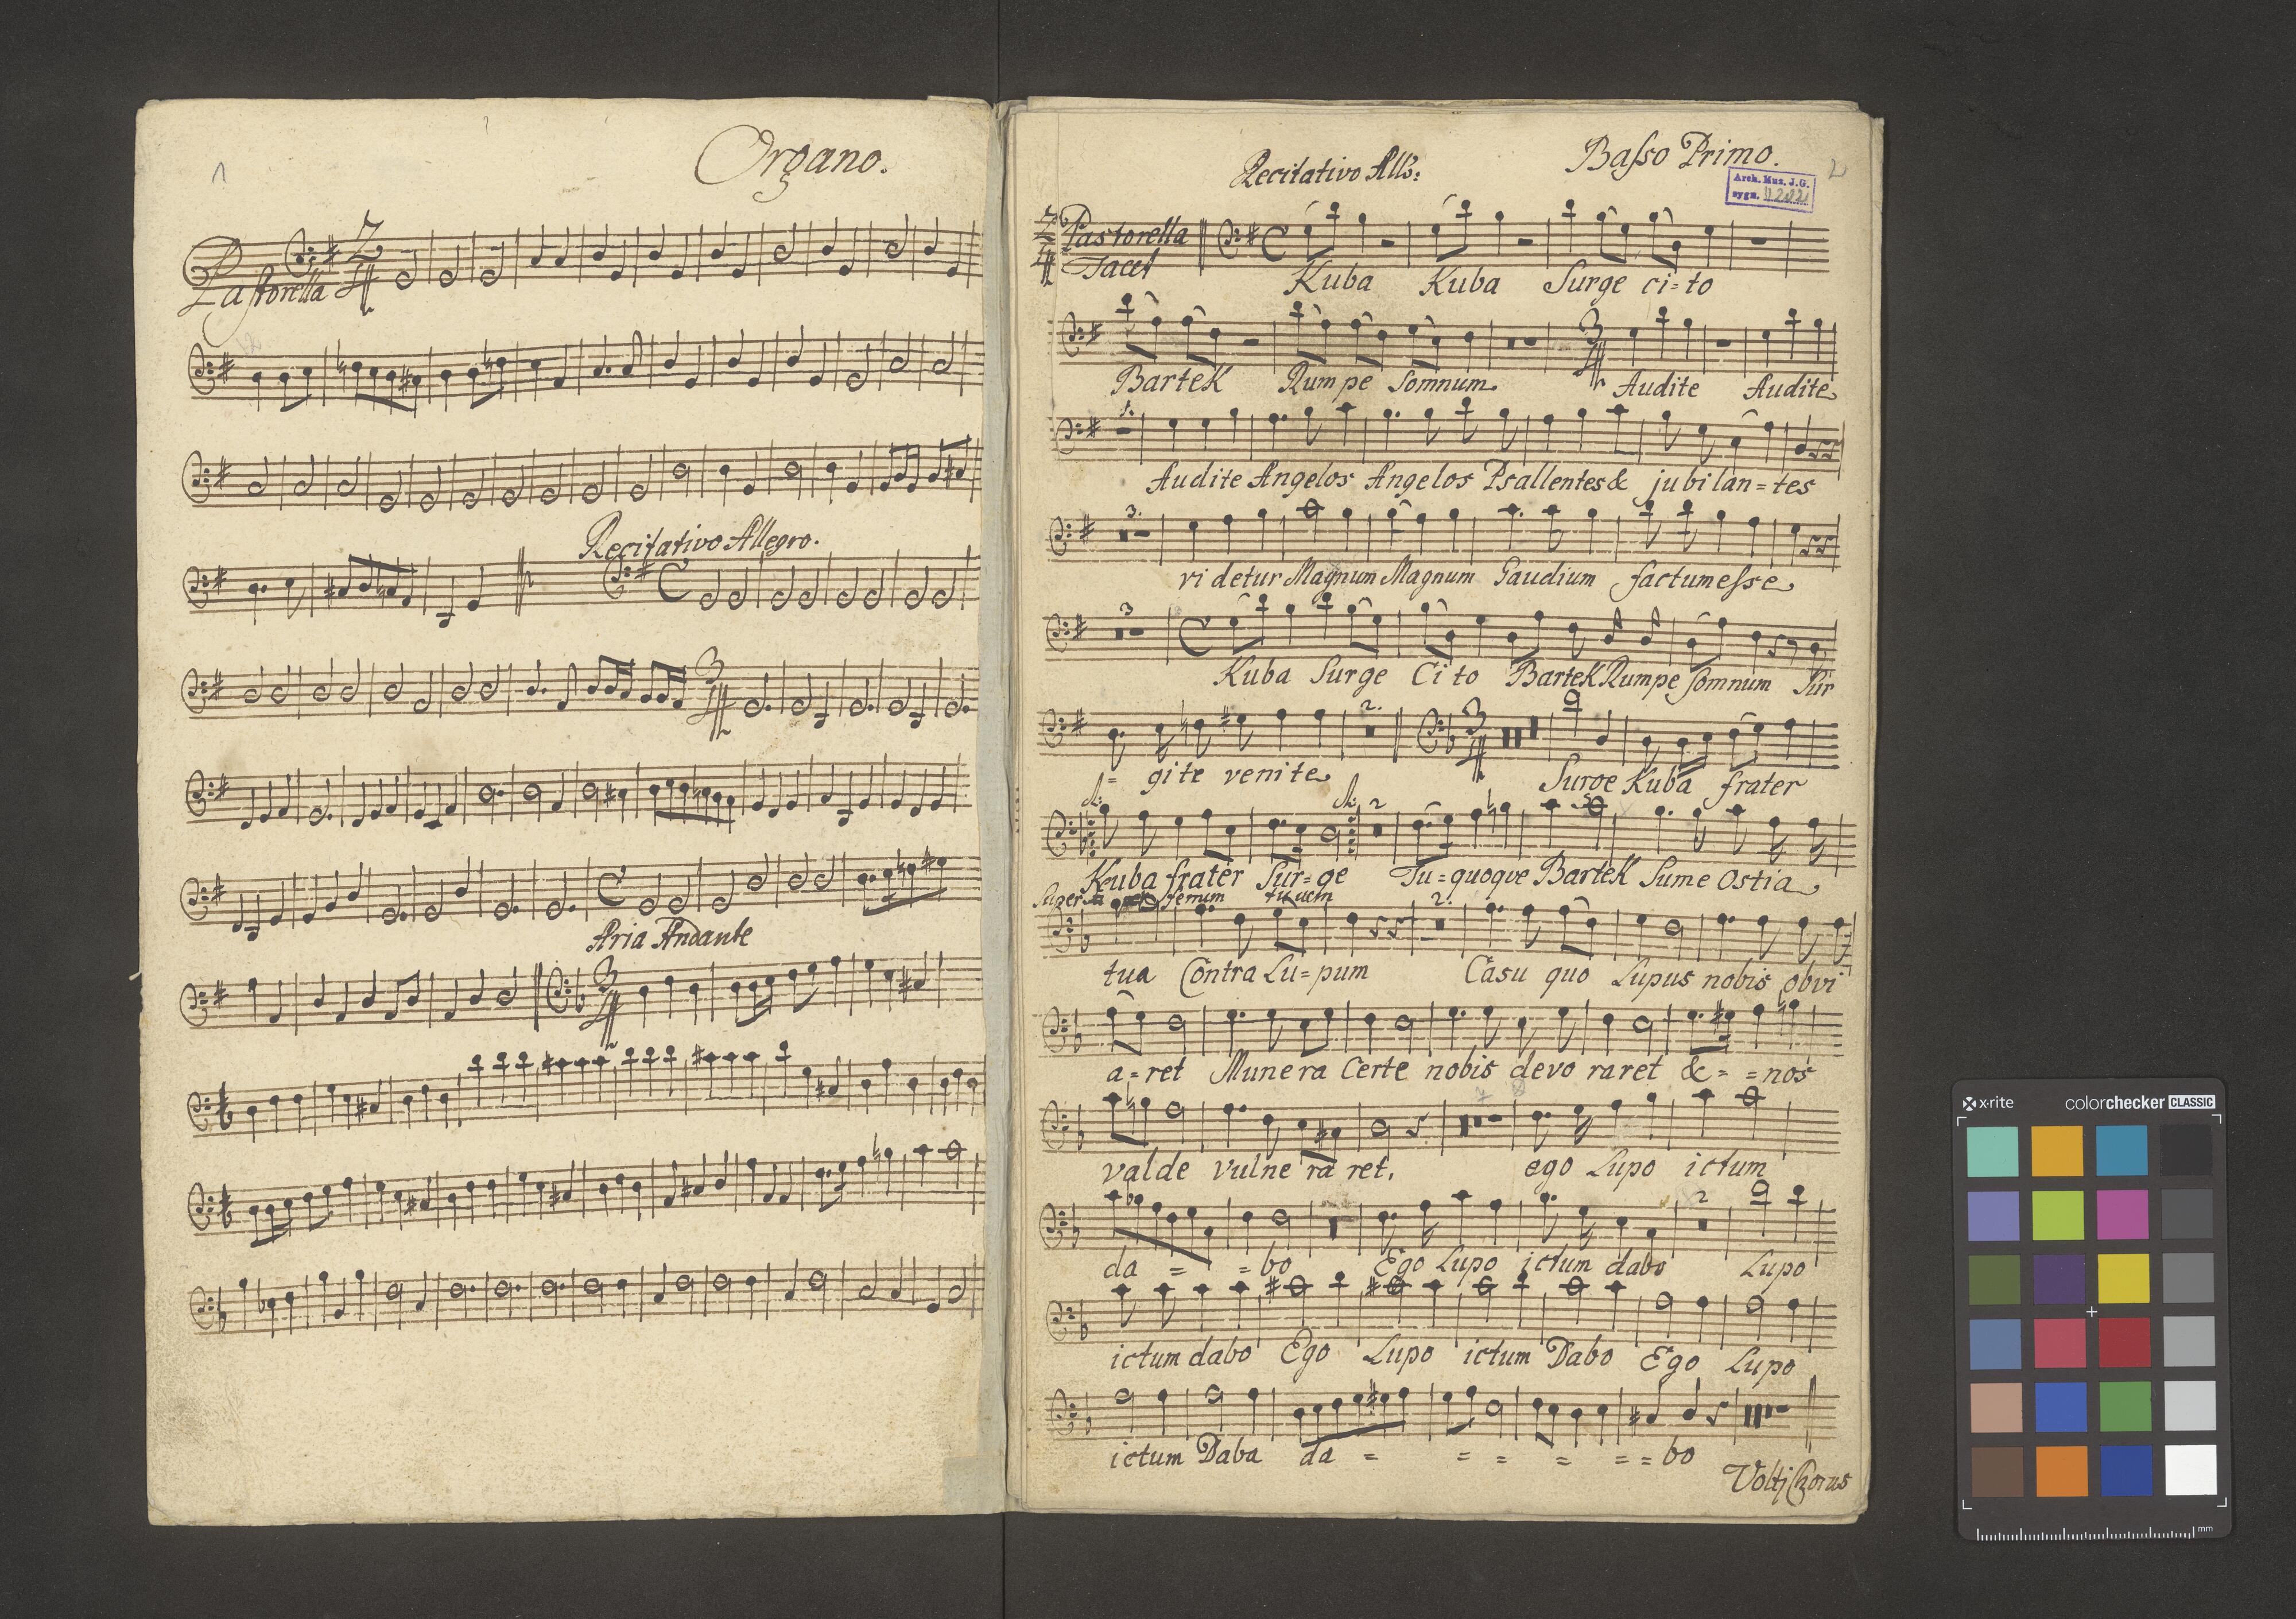 1
Organo.
Pastorella
2
4
Recitativo Allegro.
3
4
Aria Andante
3
4
Basso Primo.
2
Recitativo Allo:
Arch. Muz. J.G.
sygn.
2
4
Pastorella
Tacet
Kuba Kuba Surge ci=to
3
4
Bartek Rumpe Somnum. Audite Audite
1.
Audite Angelos Angelos Psallentes & jubilan=tes
3.
videtur Magnum Magnum Gaudium factum esse
3
Kuba Surge Cito Bartek Rumpe Somnum Sur
2.
3
4
= gite venite Surge Kuba frater
2
Kuba frater Sur=ge Tu=quoque Bartek Sume Ostia
Super femum tuuem
2.
tua Contra Lu=pum Casu quo Lupus nobis obvi
a=ret Munera Certe nobis devoraret &= =nos
valde vulneraret. ego Lupo ictum
2
da = =bo Ego Lupo ictum dabo Lupo
ictum dabo Ego Lupo ictum Dabo Ego Lupo
ictum Daba da = = = = = = bo
Volti Chorus
x-rite colorchecker CLASSIC
mm